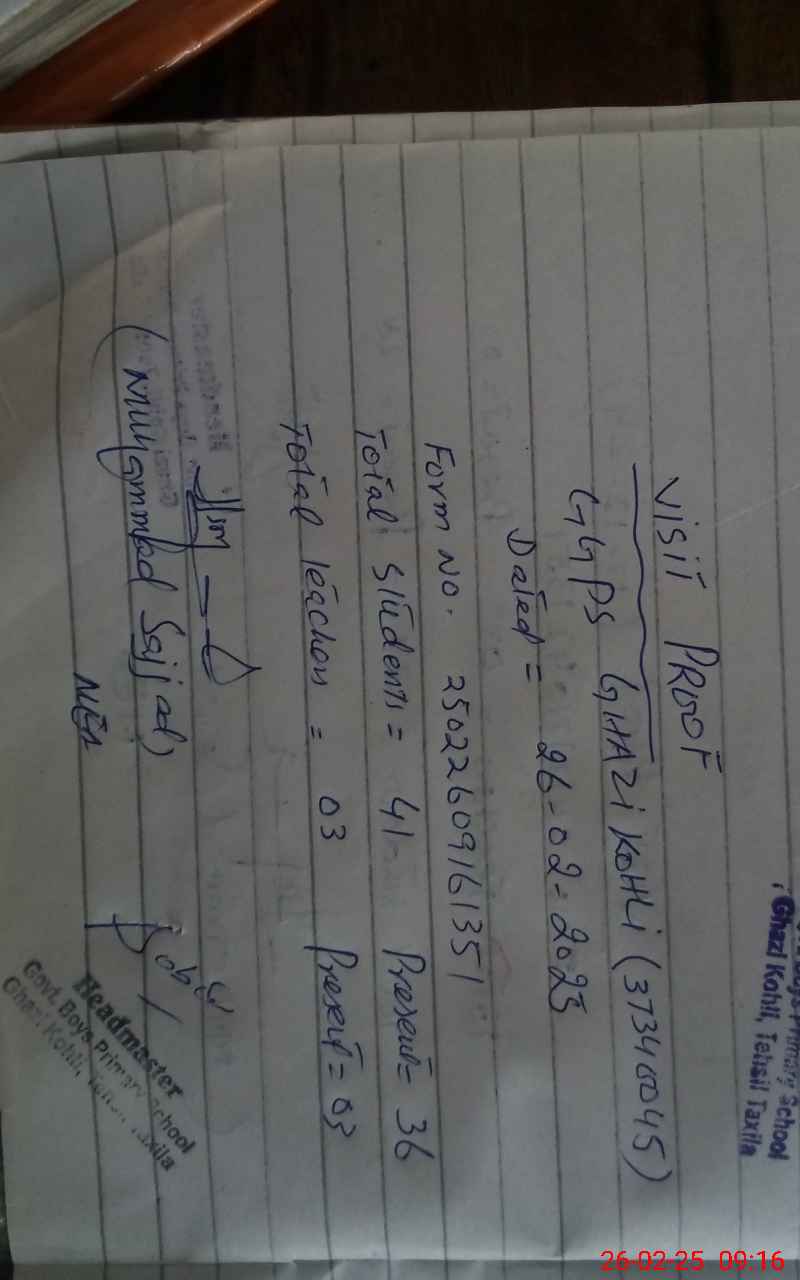 Ghazi Kohli, Tehsil Taxila
VISIT PROOF
GGPS GHAZI KOHLI (37340045)
Dated = 26-02-2025
Form No. 25022609161351
Total Students = 41 Present = 36
Total Teachers = 03 Present = 03
(Muhammad Sajjad)
MEA
Headmaster
Govt. Boys Primary School
Ghazi Kohli, Tehsil Taxila
26-02-25 09:16